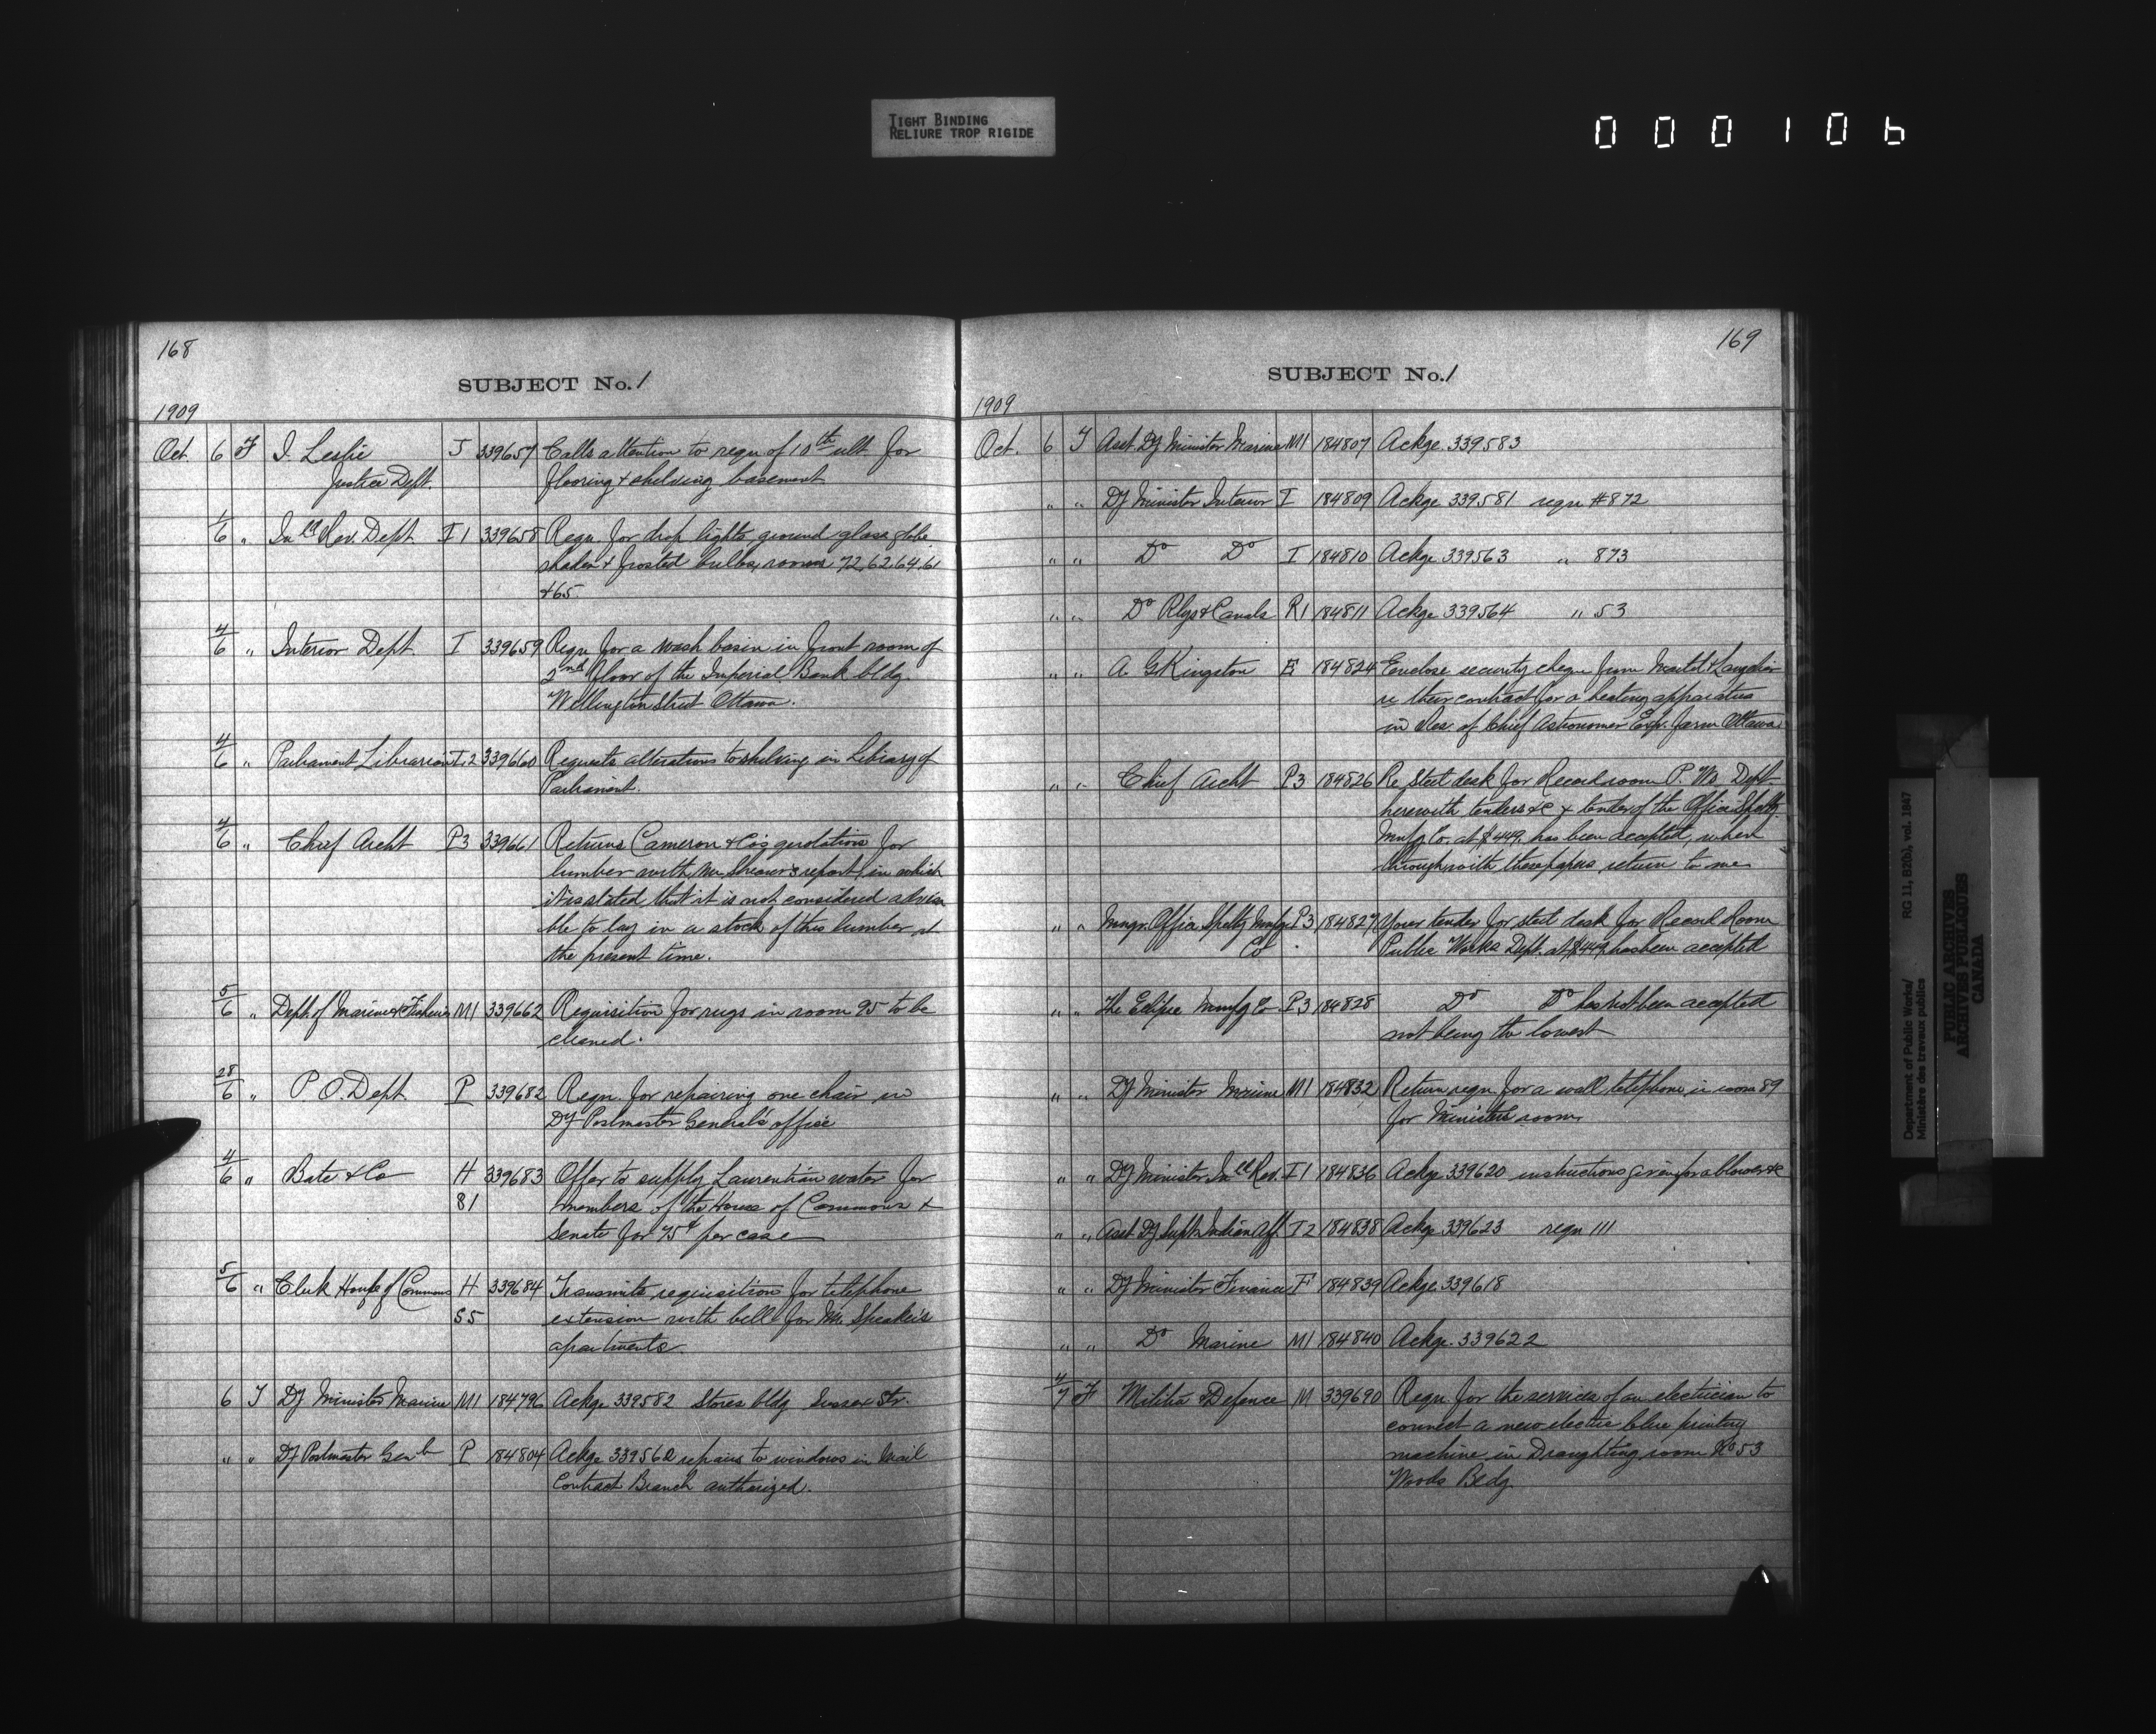 TIGHT BINDING
RELIURE TROP RIGIDE
000106
168
SUBJECT No. 1
1909
Oct. 6 F J. Leslie J 339657 Calls attention to reqn of 10th ult for
Justice Dept. flooring & shelving basement
1/6 " Inld Rev. Dept. I1 339658 Reqn. for drop lights, ground glass globe
shades & frosted bulbs, rooms 72, 62, 64, 61
& 65
4/6 " Interior Dept I 339659 Reqn for a wash basin in front room of
2nd floor of the Imperial Bank bldg.
Wellington Street Ottawa.
4/6 " Parliament Librarian 339660 Requests alterations to shelving in Library of
Parliament.
4/6 " Chief Archt P3 339661 Returns Cameron & Co's quotations for
lumber with Mr. Shearer's report, in which
it is stated that it is not considered advisa
ble to lay in a stock of this lumber at
the present time.
5/6 " Dept. of Marine & Fisheries M1 339662 Requisition for rugs in room 95 to be
cleaned.
28/6 " P O. Dept. P 339682 Reqn. for repairing one chair in
Dy Postmaster General's office
4/6 " Bate & Co H 339683 Offer to supply Laurentian water for
81 members of the House of Commons &
Senate for 75¢ per case
5/6 " Clerk House of Commons H 339684 Transmits requisition for telephone
55 extension with bell for Mr. Speaker's
apartments.
6 T Dy Minister Marine M1 184796 Ackge 339582 Stores bldg Sussex Str.
" " Dy Postmaster Genl P 184804 Ackge 339560 repairs to windows in Mail
Contract Branch authorized.
169
SUBJECT No. 1
1909
Oct. 6 T Asst. Dy Minister Marine M1 184807 Ackge. 339583
" " Dy Minister Interior I 184809 Ackge. 339581 reqn #872
" " Do Do I 184810 Ackge. 339563 " 873
" " Do Rlys & Canals R1 184811 Ackge 339564 " 53
" " A. G Kingston E 184824 Enclose security cheque from Martel & Langelier
re their contract for a heating apparatus
in Res. of Chief Astronomer Exp. farm Ottawa.
" " Chief Archt P3 184826 Re Steel desk for Record room P. Ws. Dept
herewith tenders &c & tender of the Office Splty
Mnfg Co. at $449. has been accepted, when
through with these papers return to me
" " Mngr. Office Splty Mnfg P3 184827 Your tender for steel desk for Record Room
Co Public Works Dept. at $449 has been accepted
" " The Eclipse Mnfg Co P3 184828 Do Do has not been accepted
not being the lowest
" " Dy Minister Marine M1 184832 Return reqn. for a wall telephone in room 89
for Ministers room.
" " Dy Minister Inld Rev. I1 184836 Ackge. 339620 instructions given for a blower &c
" " Asst. Dy Supt. Indian Aff. I2 184838 Ackge. 339623 reqn 111
" " Dy Minister Finance F 184839 Ackge. 339618
" " Do Marine M1 184840 Ackge. 339622
4/7 F Militia & Defence M 339690 Reqn. for the services of an electrician to
connect a new electric blue printing
machine in Draughting room No 53
Woods Bldg.
Department of Public Works/
Ministère des travaux publics
RG 11, B2(b), vol. 1847
PUBLIC ARCHIVES
ARCHIVES PUBLIQUES
CANADA